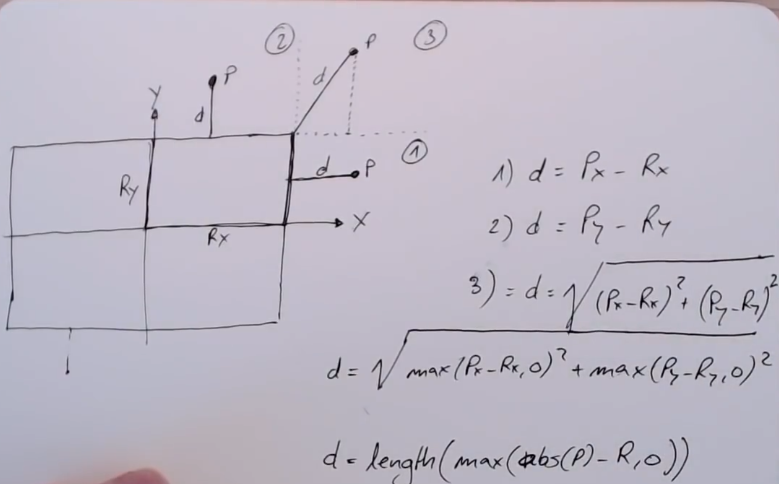 ② P ③
d
P
Y
d
①
d P
Ry
X
Rx
1) d = Px - Rx
2) d = Py - Ry
3) = d = √(Px-Rx)² + (Py-Ry)²
d = √max(Px-Rx,0)² + max(Py-Ry,0)²
d = length(max(abs(P)-R,0))